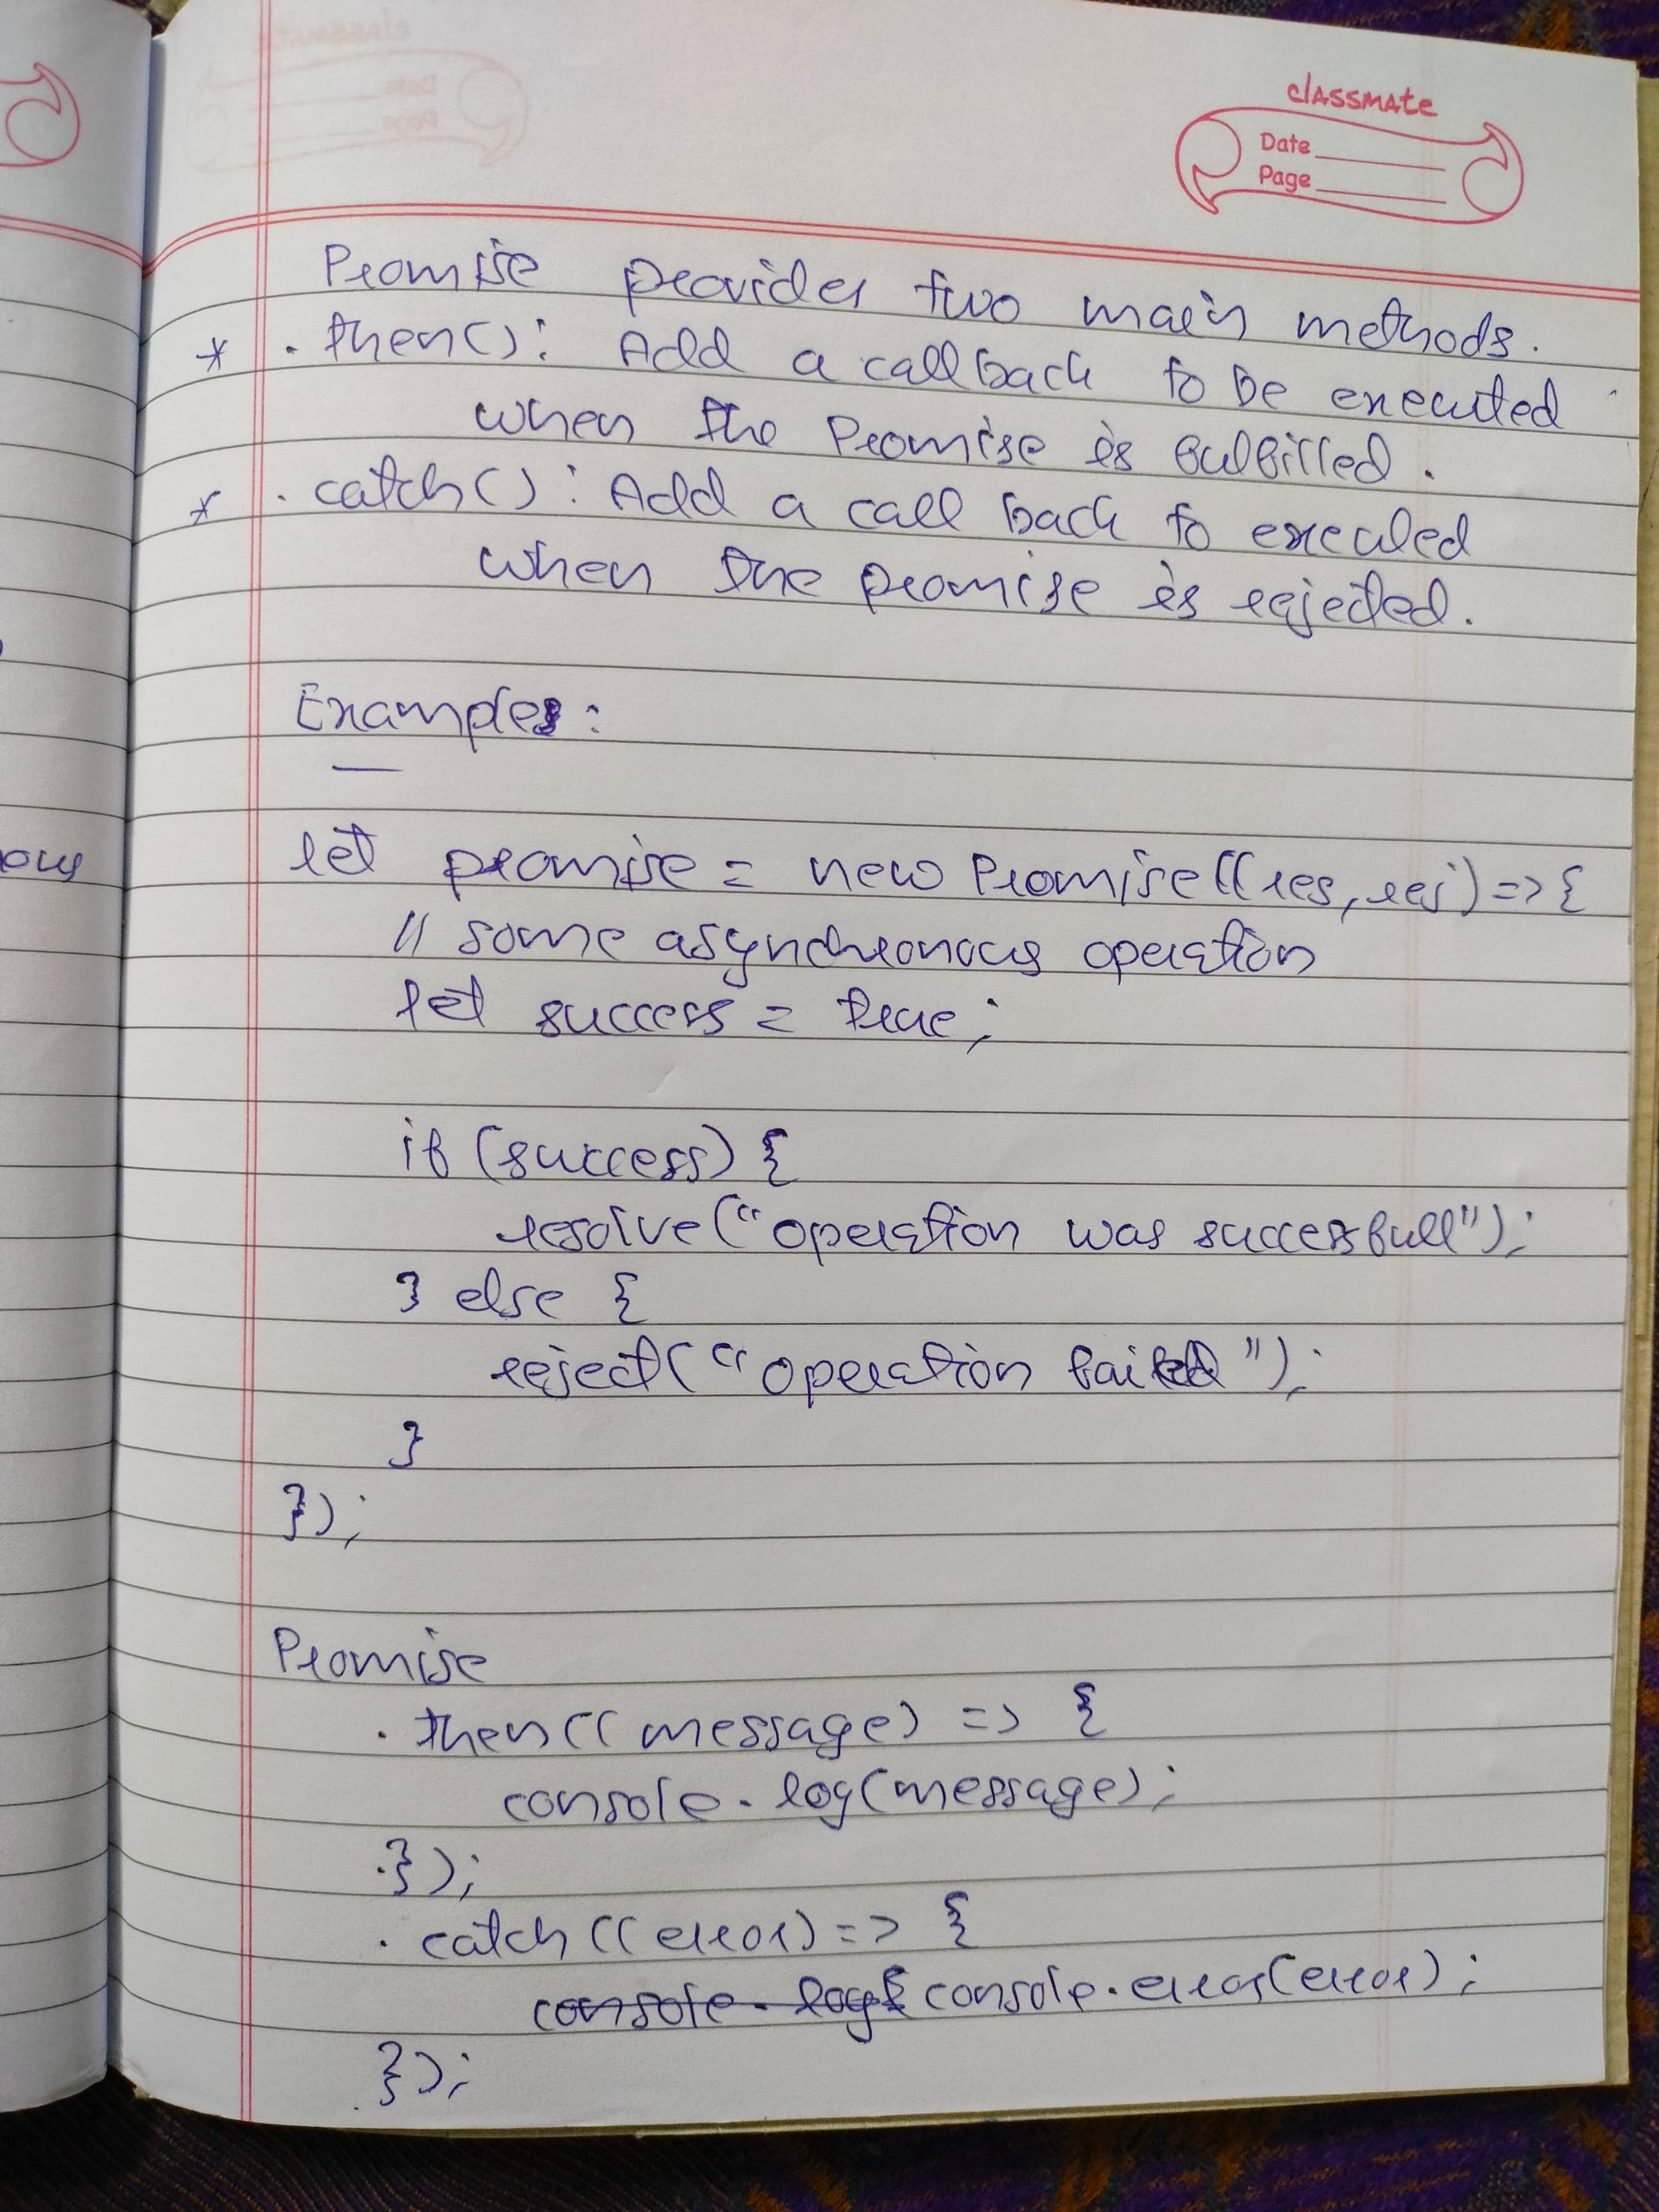 classmate
Date
Page
Promise provides two main methods.
* .then(): Add a callback to be executed
when the Promise is fulfilled.
* .catch(): Add a call back to execuled
when the promise is rejected.
Example:
let promise = new Promise((res, rej) => {
// some asynchronous operation
let success = true;
if (success) {
resolve("operation was successfull");
} else {
reject("operation failed");
}
});
Promise
.then((message) => {
console.log(message);
.});
.catch((error) => {
console.log( console.error(error);
});
ous